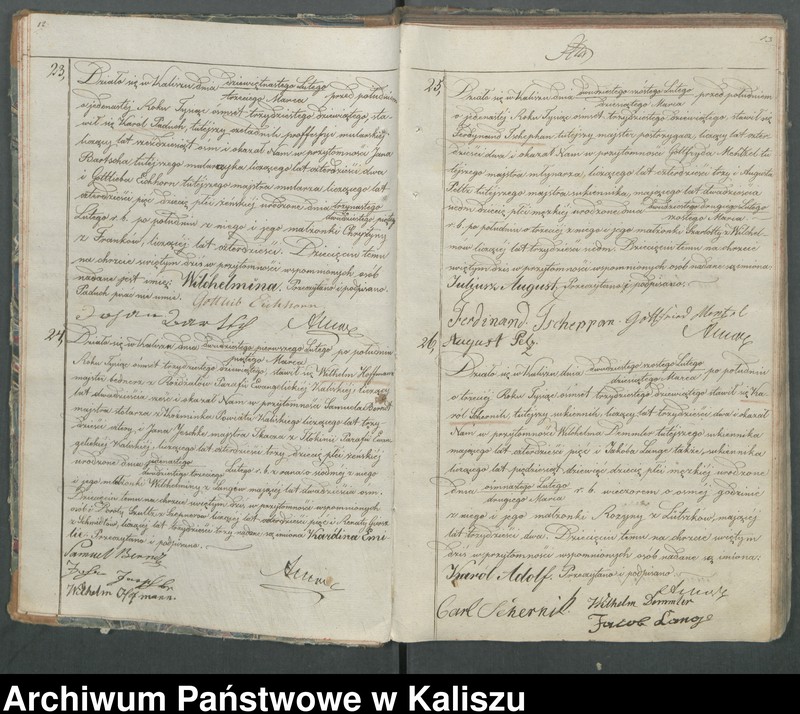 12
23,
Działo się w Kaliszu dnia dziewiętnastego Lutego / trzeciego Marca przed południem
o jedenastej Roku Tysiąc ośmset trzydziestego dziewiątego, sta-
wił się Karol Paduch, tutejszy czeladnik professyi mularskiej
liczący lat sześćdziesiąt ośm i okazał Nam w przytomności Jana
Bartschal tutejszego mularczyka liczącego lat czterdzieści dwa
i Gottlieba Eichhorn tutejszego majstra mularza liczącego lat
czterdzieści pięć dziecię płci żeńskiej urodzone dnia trzynastego / dwudziestego piątego
Lutego r. b. po południu z niego i jego małżonki Chrystyny
z Franków, liczącej lat czterdzieści. Dziecięciu temu
na chrzcie świętym dziś w przytomności wspomnionych osób
nadane jest imię: Wilchelmina. Przeczytano i podpisano.
Paduch pisać nie umie. Gottlieb Eichhorn
Johan Bartsch
24,
Działo się w Kaliszu dnia dwudziestego pierwszego Lutego / piątego Marca po południu
Roku Tysiąc ośmset trzydziestego dziewiątego, stawił się Wilhelm Hoffmann
majster bednarz z Parafii Ewangelickiej Kaliskiej liczący
lat dwadzieścia sześć i okazał Nam w przytomności Samuela Berndt
majstra stolarza z Powiatu Kaliskiego liczącego lat trzy-
dzieście i Jana Jeschke majstra tkacza z Parafii Ewan-
gelickiej Kaliskiej, liczącego lat czterdzieści trzy, dziecię płci żeńskiej
urodzone dnia jedenastego / dwudziestego trzeciego Lutego r. b. z rana o siódmej z niego
i jego małżonki Wilhelminy z Langów mającej lat dwadzieścia ośm.
Dziecięciu temu na chrzcie świętym dziś w przytomności wspomnionych
osób: lat czterdzieści pięć i Renaty
liczącej lat trzydzieści trzy nadane są imiona Karolina Emi-
lie. Przeczytano i podpisano.
Samuel Berndt
Johan Jeschke
Wilhelm Hoffmann.
13
25,
Działo się w Kaliszu dnia dwudziestego szóstego Lutego / dziesiątego Marca przed południem
o jedenastej Roku Tysiąc ośmset trzydziestego dziewiątego, stawił się
Ferdynand Tscheppan tutejszy majster liczący lat czter-
dzieści dwa i okazał Nam w przytomności Gottfryda Mentzel tu-
tejszego majstra młynarza, liczącego lat czterdzieści trzy i Augusta
Peltz tutejszego majstra sukiennika, mającego lat dwadzieścia
siedm dziecię płci męzkiej urodzone dnia dwudziestego drugiego Lutego / szóstego Marca
r. b. po południu o trzeciej z niego i jego małżonki Szarlotty z Wilchel-
mów liczącej lat trzydzieści siedm. Dziecięciu temu na chrzcie
świętym dziś w przytomności wspomnionych osób nadane są imiona:
Juljusz August. Przeczytano i podpisano.
Ferdinand Tscheppan. Gottfried Mentzel
August Pelz.
26,
Działo się w Kaliszu dnia dwudziestego szóstego Lutego / dziesiątego Marca po południu
o trzeciej Roku Tysiąc ośmset trzydziestego dziewiątego stawił się Ka-
rol Schernik, tutejszy sukiennik, liczący lat trzydzieści dwa i okazał
Nam w przytomności Wilchelma Demmler tutejszego sukiennika
mającego lat czterdzieści pięć i Jakóba Lange także sukiennika
liczącego lat pięćdziesiąt dziewięć, dziecię płci męzkiej urodzone
dnia ośmnastego Lutego / drugiego Marca r. b. wieczorem o ósmej godzinie
z niego i jego małżonki Rozyny z Lutzków, mającej
lat trzydzieści dwa. Dziecięciu temu na chrzcie świętym
dziś w przytomności wspomnionych osób nadane są imiona:
Karol Adolf. Przeczytano i podpisano.
Carl Schernik Wilhelm Demmler
Jacob Lange
Archiwum Państwowe w Kaliszu